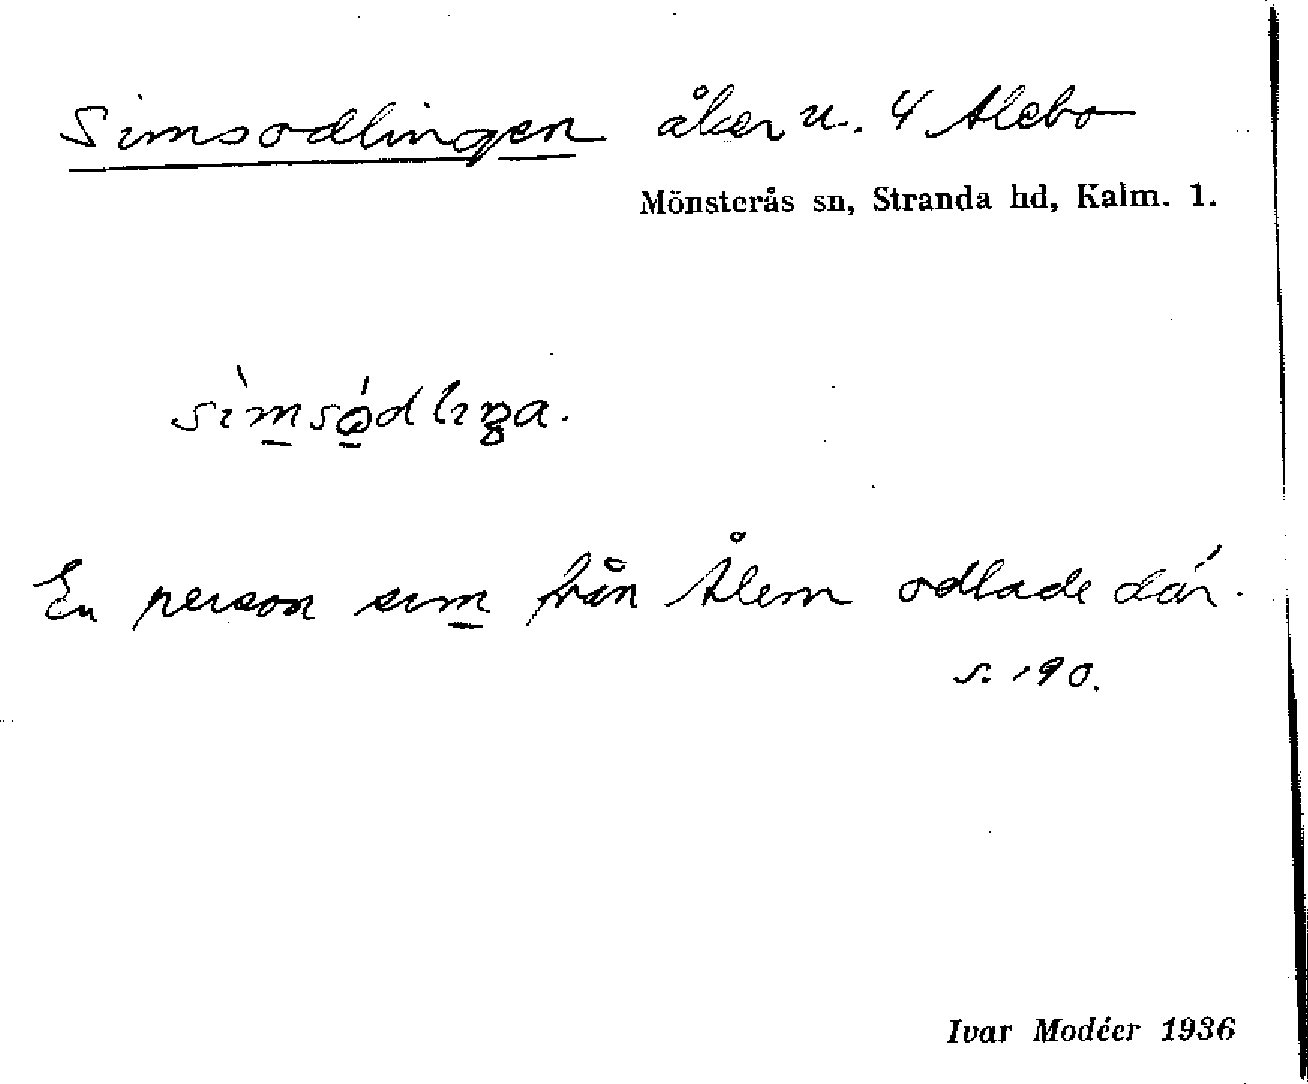 Simsodlingen åker u. 4 Alebo
Mönsterås sn, Stranda hd, Kalm. 1.
sìmsódlıŋa.
En person sım från Ålem odlade där.
s. 190.
Ivar Modéer 1936